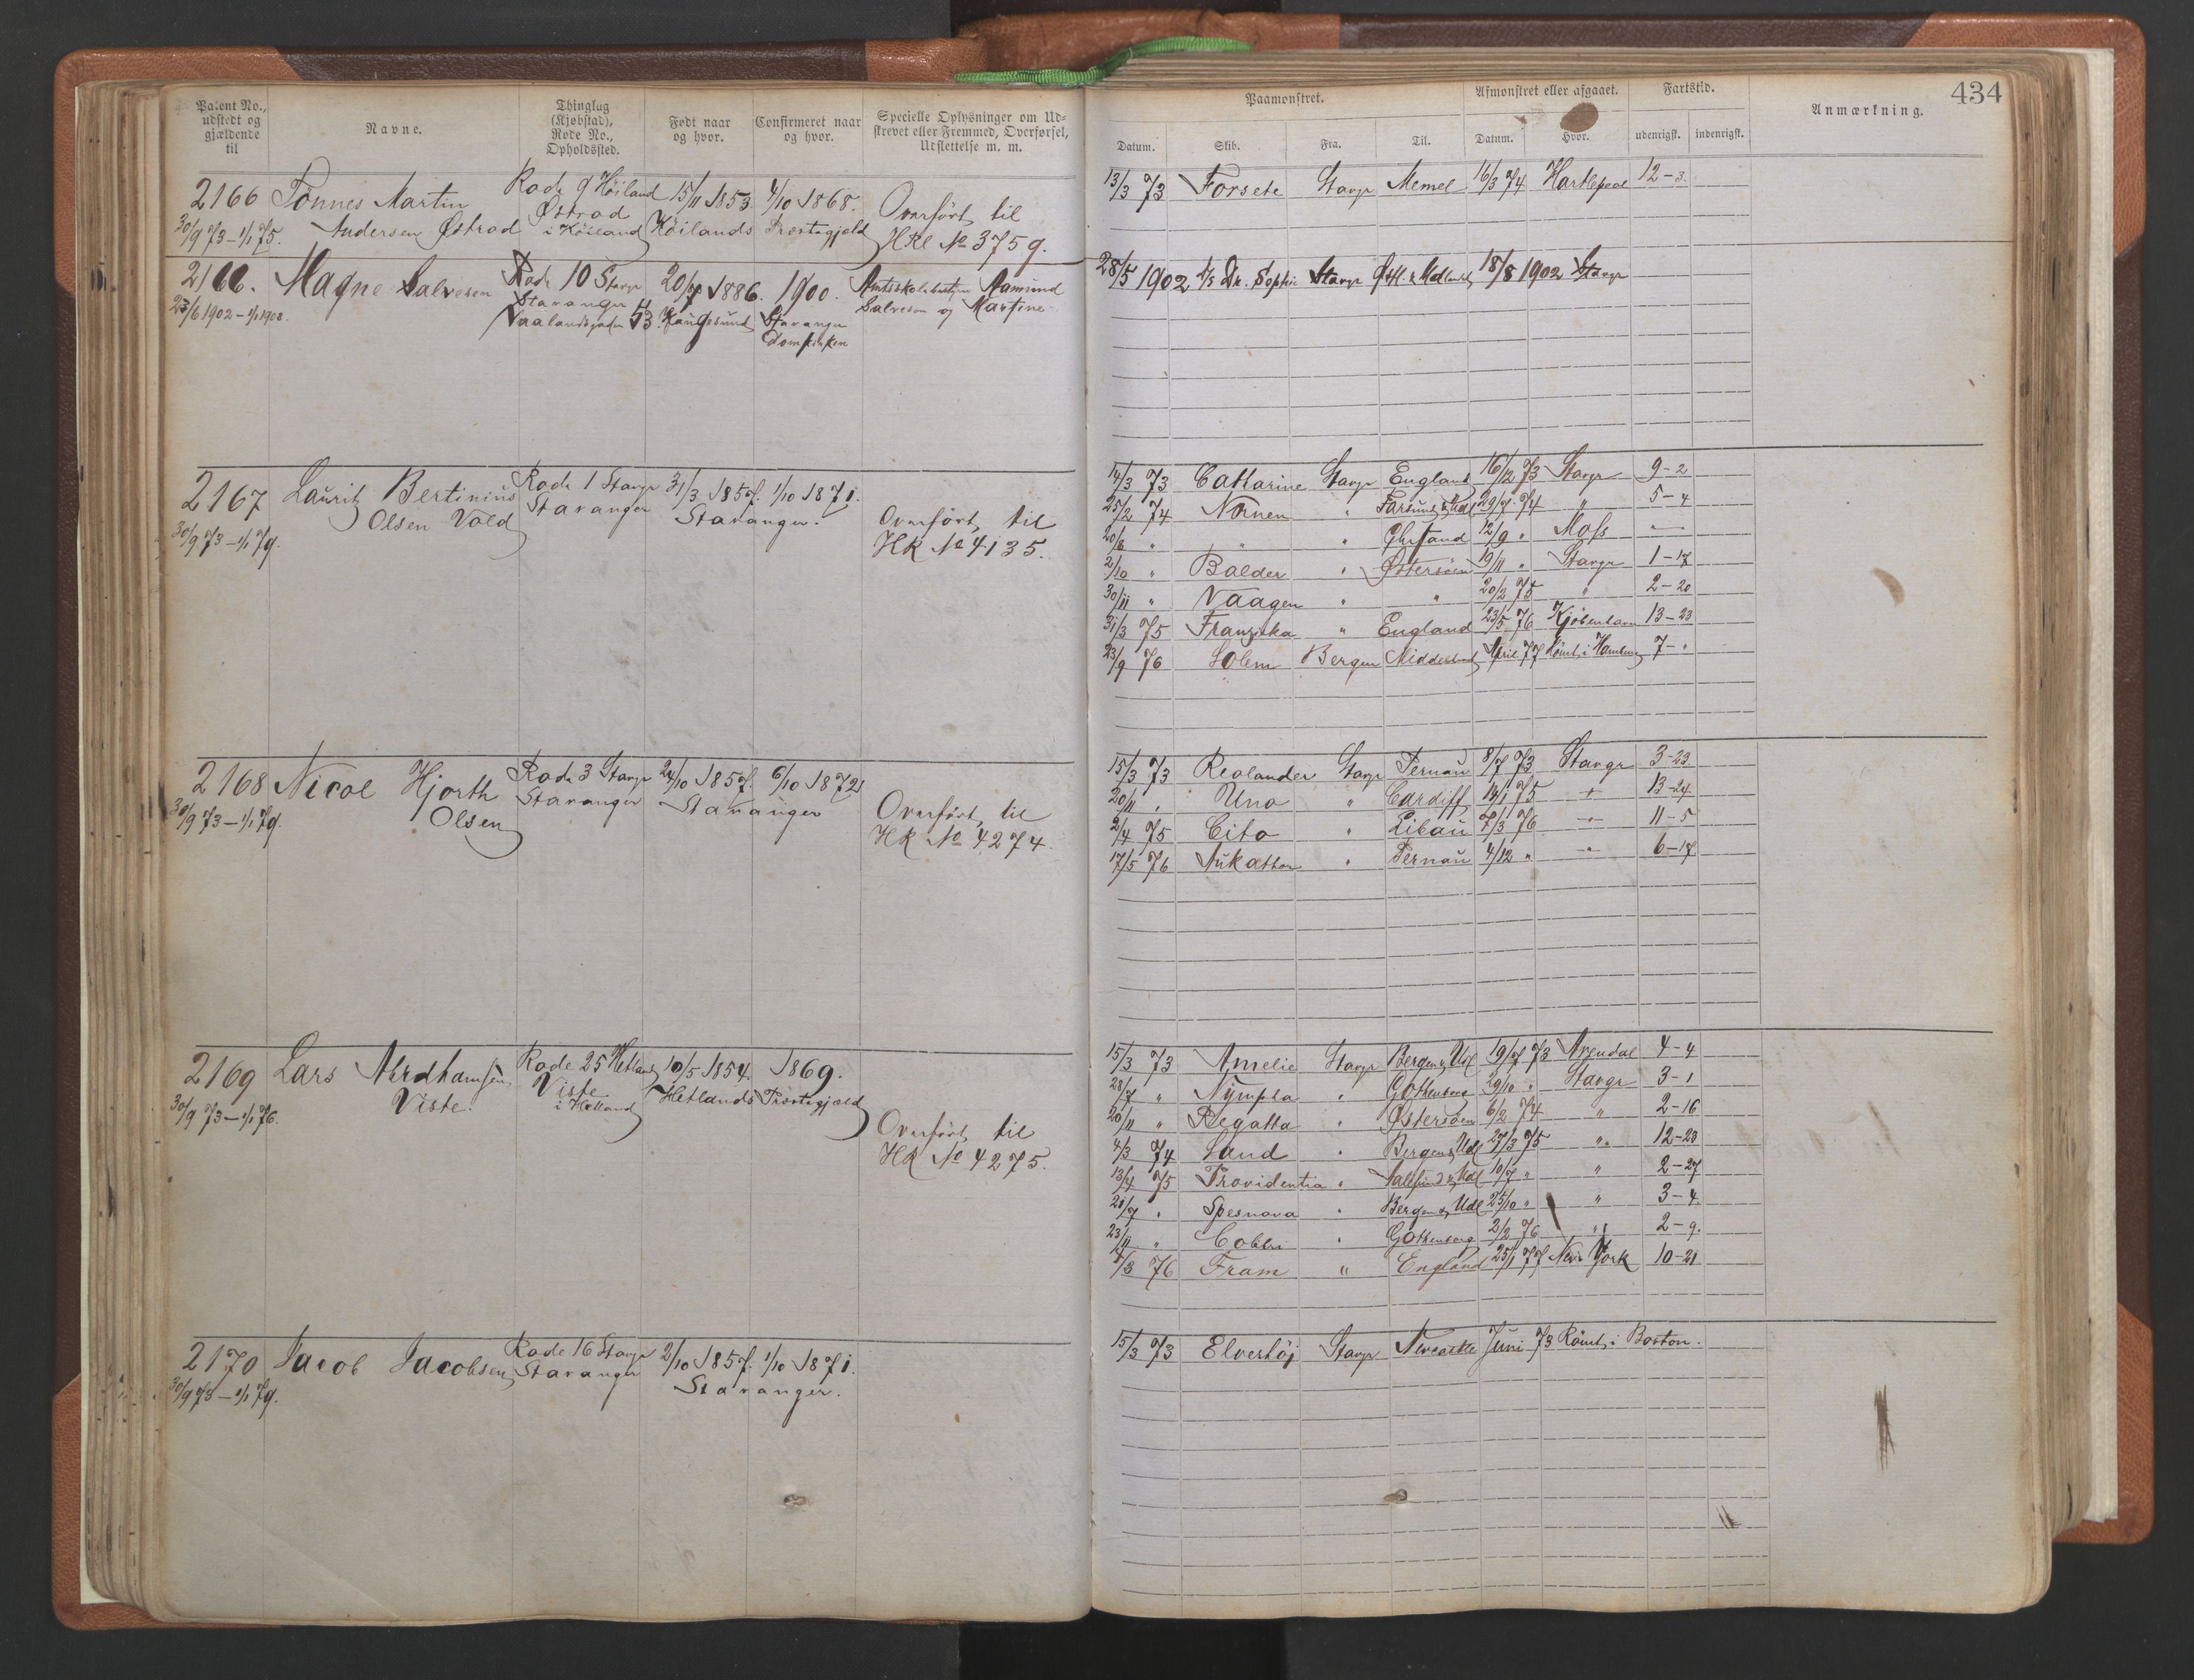 434
Patent No., udstedt og gjældende til
Navne.
Thinglag (Kjøbstad), Rode No., Opholdssted.
Født naar og hvor.
Confirmeret naar og hvor.
Specielle Oplysninger om Udskrevet eller Fremmed, Overførsel, Udslettelse m. m.
Paamønstret.
Afmønstret eller afgaaet.
Fartstid.
Anmærkning.
Datum. Skib. Fra. Til. Datum. Hvor. udenrigsk. indenrigsk.
2166 Tønnes Martin Rode 9 Høiland 15/11 1853 4/10 1868.
30/9 73 - 1/1 75. Andersen Østrod Østrod i Høiland Høilands Præstegjæld
Overført til
HRl No 3759.
13/3 73 Forsete Stavgr Memel 16/3 74 Hartlepool 12-3
2166. Magne Salvesen Rode 10 Stavgr 20/7 1886. 1900. Amtsskolebestyrer Aamund
23/6 1902 - 1/1 1908. Stavanger Salvesen og Martine
Vaalandsgaden 53. Haugesund Stavanger
Domkirken
28/5 1902 Dr. Sophie Stavgr 18/8 1902 Stavgr
2167 Lauritz Bertinius Rode 1 Stavgr 31/3 1857. 1/10 1871.
30/9 73 - 1/1 79. Olsen Vold Stavanger Stavanger.
Overført til
HR No 4135.
14/3 73 Catharine Stavgr England 16/12 73 Stavgr 9-2
25/2 74 Nornen " Farsund & Udl 29/7 74 " 5-4
20/8 " " " 12/9 " Moss
2/10 " Balder " Østersøen 19/11 " Stavgr 1-17
30/11 " Vaagen " " 20/2 75 " 2-20
31/3 75 Franziska " England 23/5 76 Kjøbenhavn 13-23
23/9 76 Solem Bergen April 77 Rømt i Hamburg 7-"
2168 Nicol Hjorth Rode 3 Stavgr 24/10 1857. 6/10 1872
30/9 73 - 1/1 79. Olsen Stavanger Stavanger
Overført til
HR No 4274.
15/3 73 Reolander Stavgr Pernau 8/7 73 Stavgr 3-23
20/11 " Uno " Cardiff 14/1 75 " 13-24
2/4 75 Cito " Libau 7/3 76 " 11-5
17/5 76 " Pernau 4/12 " " 6-17
2169 Lars Rode 25 Hetland 10/5 1854. 1869.
30/9 73 - 1/1 76. Viste. Viste i Hetland Hetlands Præstegjæld
Overført til
HR No 4275.
15/3 73 Amelie Stavgr Bergen & Udl 19/7 73 Arendal 4-4
28/7 " Nympha " Gothenborg 29/10 " Stavgr 3-1
20/11 " Regatta " Østersøen 6/2 74 " 2-16
4/3 74 Sand " Bergen & Udl 27/3 75 " 12-23
13/4 75 Providentia " 10/7 " " 2-27
21/7 " Spesnova " Bergen & Udl 25/10 " " 3-4
23/11 " Colibri " Gothenborg 2/2 76 " 2-9.
4/3 76 Fram " England 25/1 77 New York 10-21
2170 Jacob Jacobsen Rode 16 Stavgr 2/10 1857. 1/10 1871.
30/9 73 - 1/1 79. Stavanger Stavanger.
15/3 73 Elverhøj Stavgr Newcastle Juni 73 Rømt i Boston.